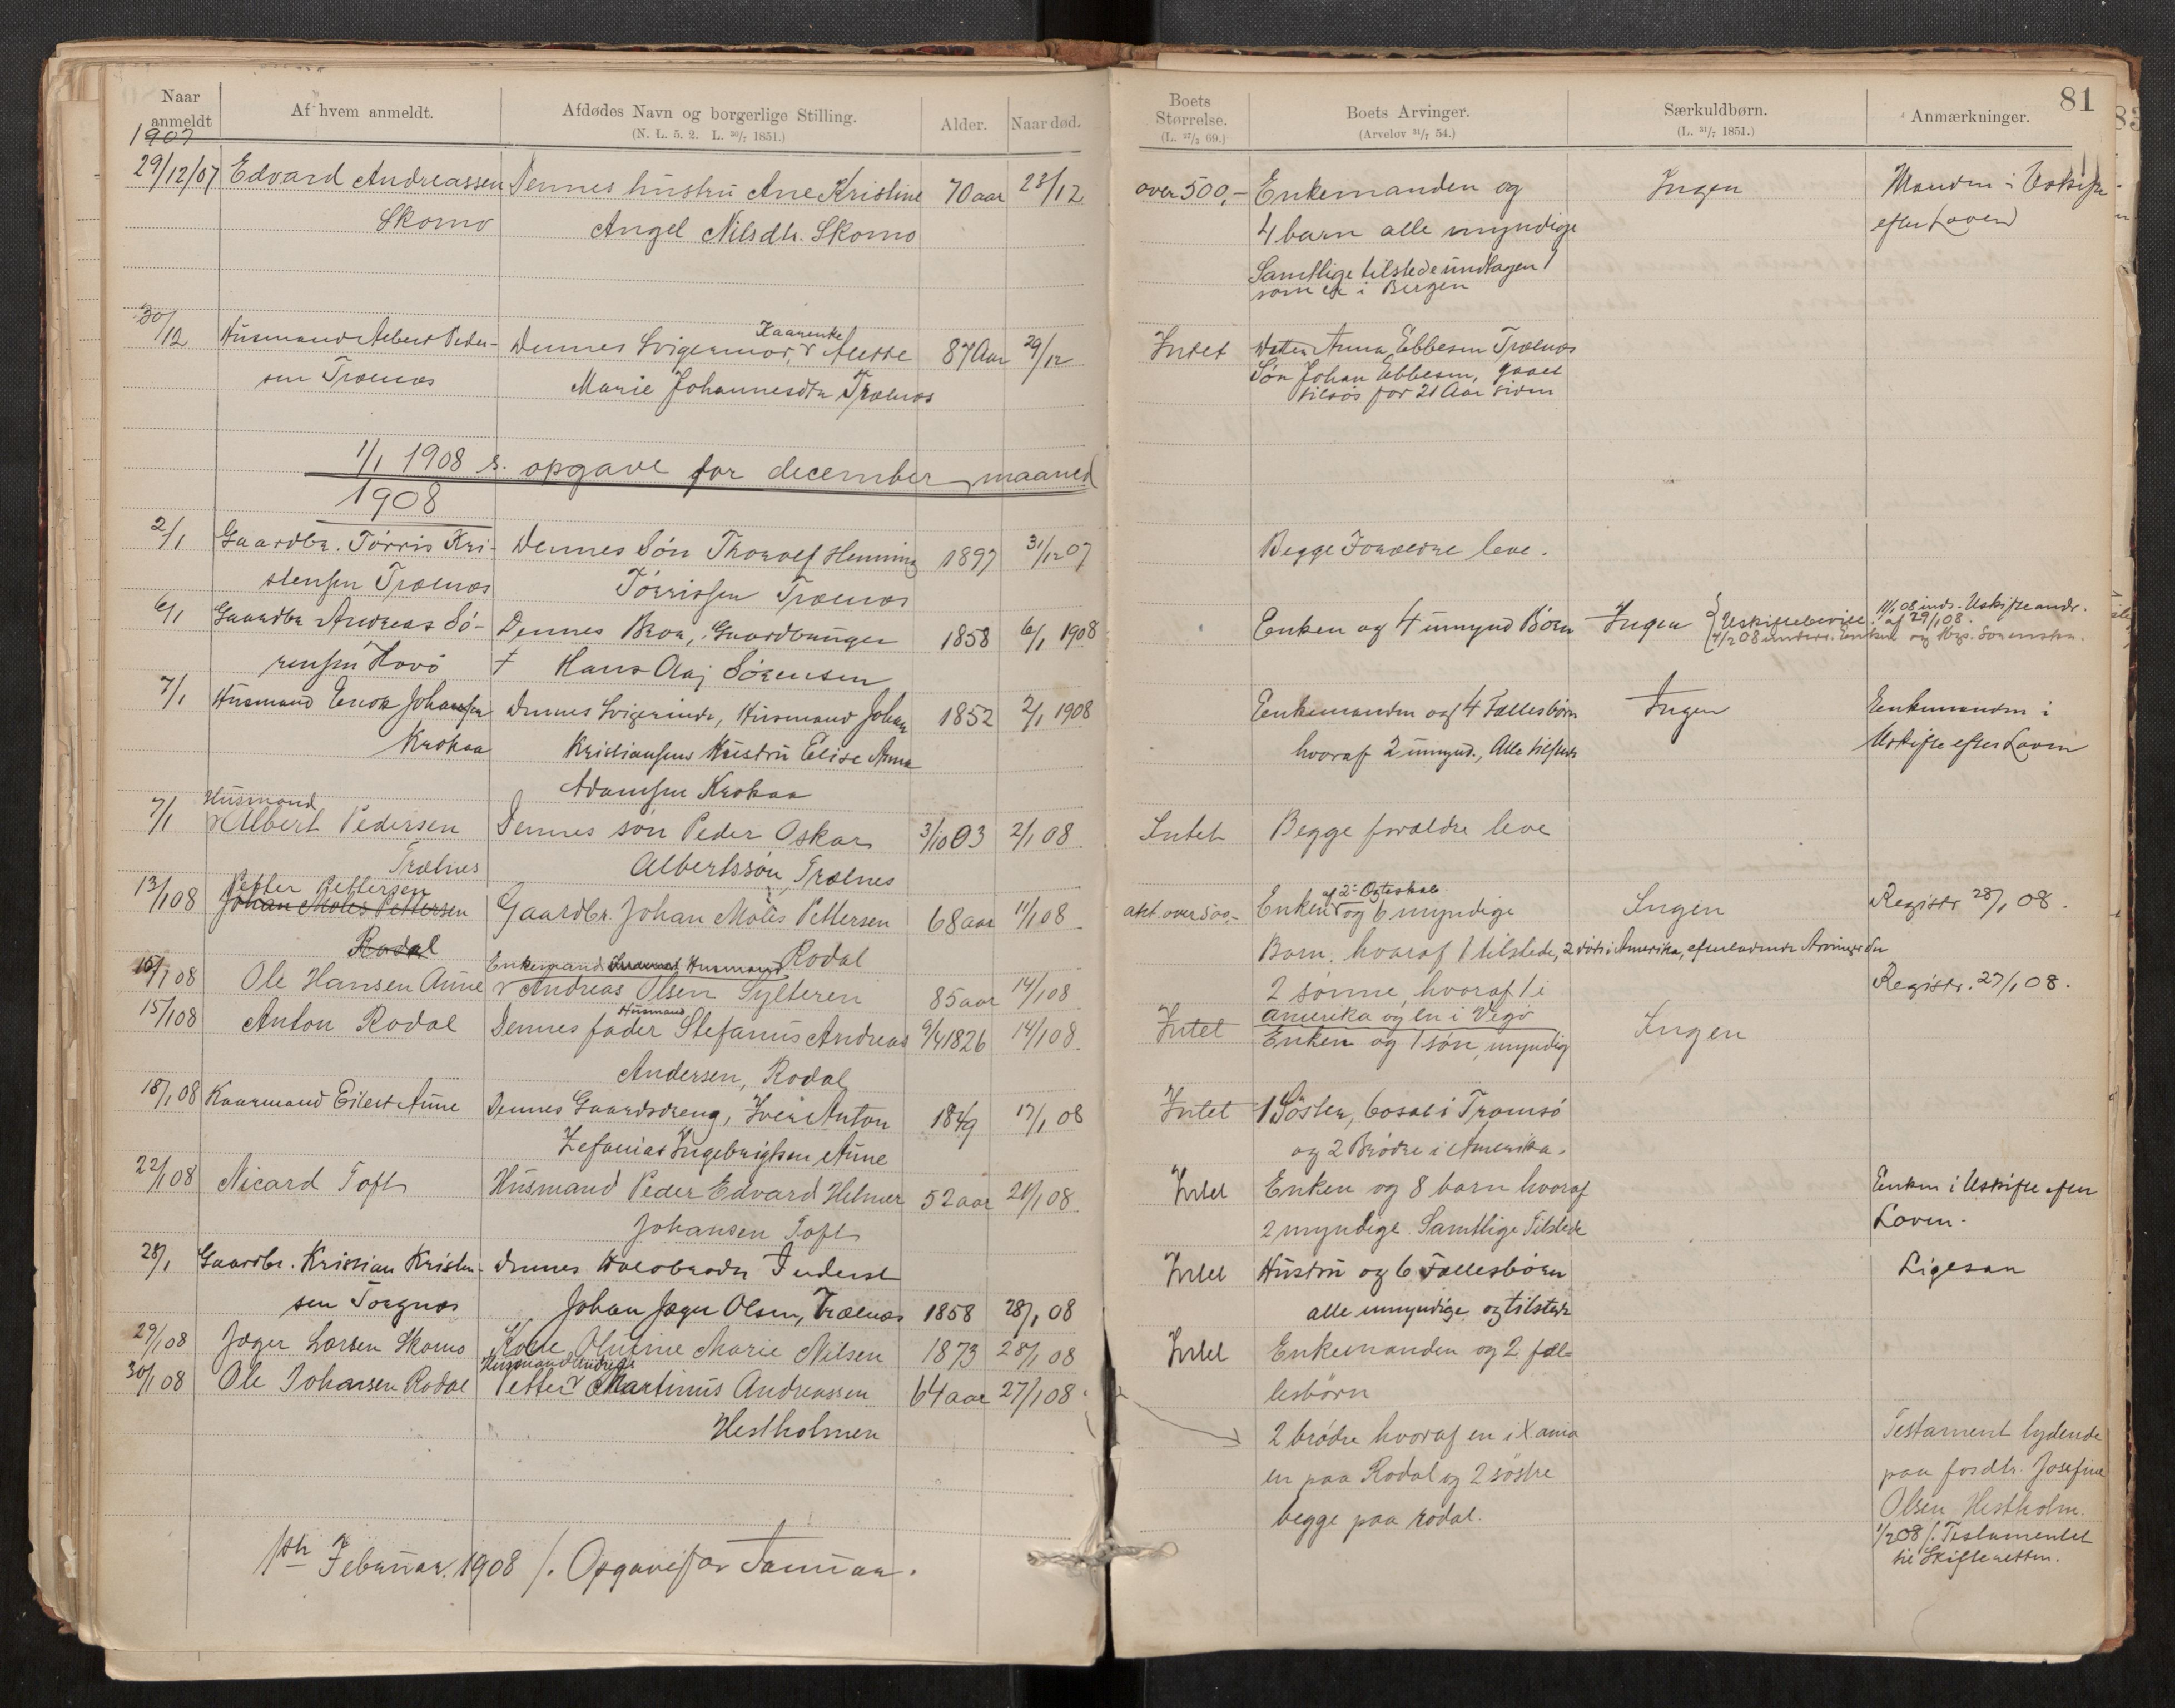 Naar anmeldt
Af hvem anmeldt.
Afdødes Navn og borgerlige Stilling.
(N. L. 5, 2. L. 30/7 1851.)
Alder.
Naar død.
Boets Størrelse.
(L. 27/3 69.)
Boets Arvinger.
(Arvelov 31/7 54.)
Særkuldbørn.
(L. 31/7 1851.)
Anmærkninger.
81
1907
29/12/07 Edvard Andreassen Dennes hustru Ane Kristine 70 aar 23/12 over 500,- Enkemanden og Ingen Manden i Uskifte
Skomo Angel Nilsdtr. Skomo 4 barn alle myndige efter Loven
Samtlige tilstede undtagen 1
som er i Bergen
30/12 Husmand Albert Peder- Dennes Svigermor, Kaarenke 87 Aar 29/12 Intet Datter Anna Ebbesen Trælnes
sen Trælnes Marie Johannesdtr Trælnes Søn Johan Ebbesen, gaaet
tilsøs for 21 Aar siden
1/1 1908 s. opgave for december maaned
1908
2/1 Gaardbr. Tørris Kri- Dennes Søn Thoralf Henning 1897 31/12 07 Begge Forældre leve.
stensen Trælnes Tørrissen Trælnes
6/1 Gaardbr Andreas Sø- Dennes Bror, Gaardbruger 1858 6/1 1908 Enken og 4 umynd Børn Ingen { Uskiftebevill. af 29/1 08. 11/1 08 inds. Uskifteandr.
rensen Havø † Hans Aaj Sørensen 4/2 08 underr. Enken og
7/1 Husmand Enok Johansen Dennes Svigerinde, Husmand Johan 1852 2/1 1908 Enkemanden og 4 Fællesbørn Ingen Enkemanden i
Krokaa Kristiansens Hustru Elise Anna hvoraf 2 umynd., Alle tilstede Uskifte efter Loven
Adamsen Krokaa
7/1 Husmand Albert Pedersen Dennes søn Peder Oskar 3/10 03 2/1 08. Intet Begge forældre leve
Trælnes Albertssøn, Trælnes
13/1 08 Petter Pettersen
Johan Motis Pettersen Gaardbr. Johan Motis Pettersen 68 aar 11/1 08 akt. over 500,- Enken af 2det Ægteskab og 6 myndige Ingen Registr 28/1 08.
Rodal Rodal Barn, hvoraf 1 tilstede, 2 døde i Amerika, efterladende Arvinger der
16/1 08 Ole Hansen Aune Enkemand Husmand Andreas Olsen Sylteren 85 aar 14/1 08 2 sønne, hvoraf 1 i Registr. 27/1 08.
amerika og en i Vegø
15/1 08 Anton Rodal Dennes fader Husmand Stefanus Andreas 9/4 1826 14/1 08. Intet Enken og 1 søn, myndig Ingen
Andersen, Rodal
18/1 08 Kaarmand Eilert Aune Dennes Gaardsdreng, Iver Anton 1849 17/1 08 Intet 1 Søster, bosat i Tromsø
Zefanias Ingebrigtsen Aune og 2 Brødre i Amerika.
22/1 08 Nicard Toft Husmand Peder Edvard Helmer 52 aar 21/1 08. Intet Enken og 8 barn hvoraf Enken i Uskifte efter
Johansen Toft 2 myndige. Samtlige Tilstede Loven.
28/1 Gaardbr. Kristian Kristen- Dennes Halvbroder Inderst Intet Hustru og 6 Fællesbørn Ligesaa
sen Torgnes Johan Jæger Olsen, Trælnes 1858 28/1 08 alle umyndige og tilstede
29/1 08 Jæger Larsen Skomo Kone Olufine Marie Nilsen 1873 28/1 08 Intet Enkemanden og 2 fæl-
lesbörn
30/1 08 Ole Johansen Rodal Husmand Petter Martinus Andreassen 64 aar 27/1 08
Hestholmen 2 brødre hvoraf en i X ania Testament lydende
en paa Rodal og 2 søstre paa fosdtr. Josefine
begge paa rodal. Olsen Hestholm.
1/2 08 /. Testamentet
til Skifteretten.
1ste Februar. 1908 /. Opgave for Januar.